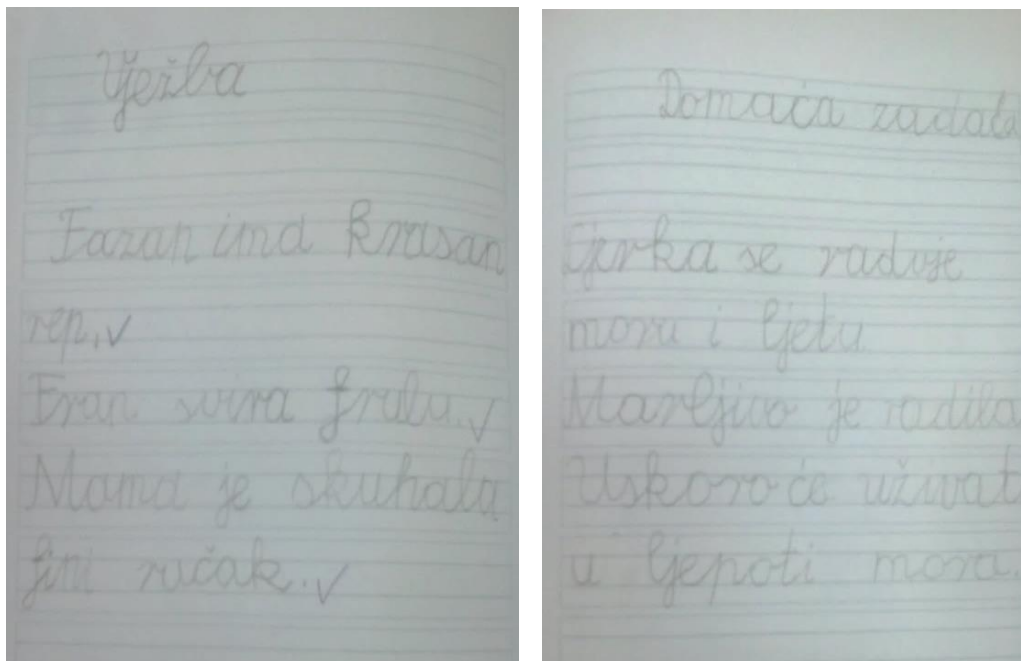 Vježba
Fazan ima krasan
rep.
Fran svira frulu.
Mama je skuhala
fini ručak.
Domaća zadaća
se raduje
moru i ljetu
Marljivo je radila
Uskoro će uživat
u ljepoti mora.